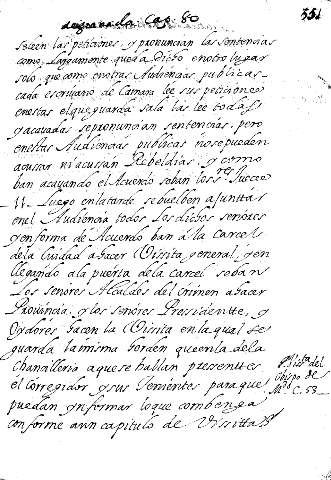 de granada Cap. 80
351
Se leen las peticiones, y pronuncian las sentencias
como Largamente queda dicto en otro lugar
solo que como en otras Audiencias publicas
cada escriuano de Camara lee sus peticiones
en estas el que guarda sala las lee todas
y acauadas se pronuncian sentencias, pero
en estas Audiencias publicas no se pueden
acussar ni acussan Rebeldias, y como
ban acauando el Acuerdo se ban los Sres Jueces
11. Luego en la tarde se buelben a juntar
en el Audiencia todos los dichos señores
y en forma de Acuerdo ban a la carcel
de la Ciudad a hacer Vissita general, y en
llegando a la puerta de la carcel se ban
Los señores Alcaldes del Crimen a hacer
Prouincia, y los señores Pressidentte, y
Oydores hacen la Vissita en la qual se
guarda la misma horden que en la de la
Chancilleria a que se hallan pressenttes
el Corregidor y sus Tenientes para que
puedan ynformar lo que combenga
conforme a un capitulo de Vissitta
Vissta del
Obispo de
C. 53